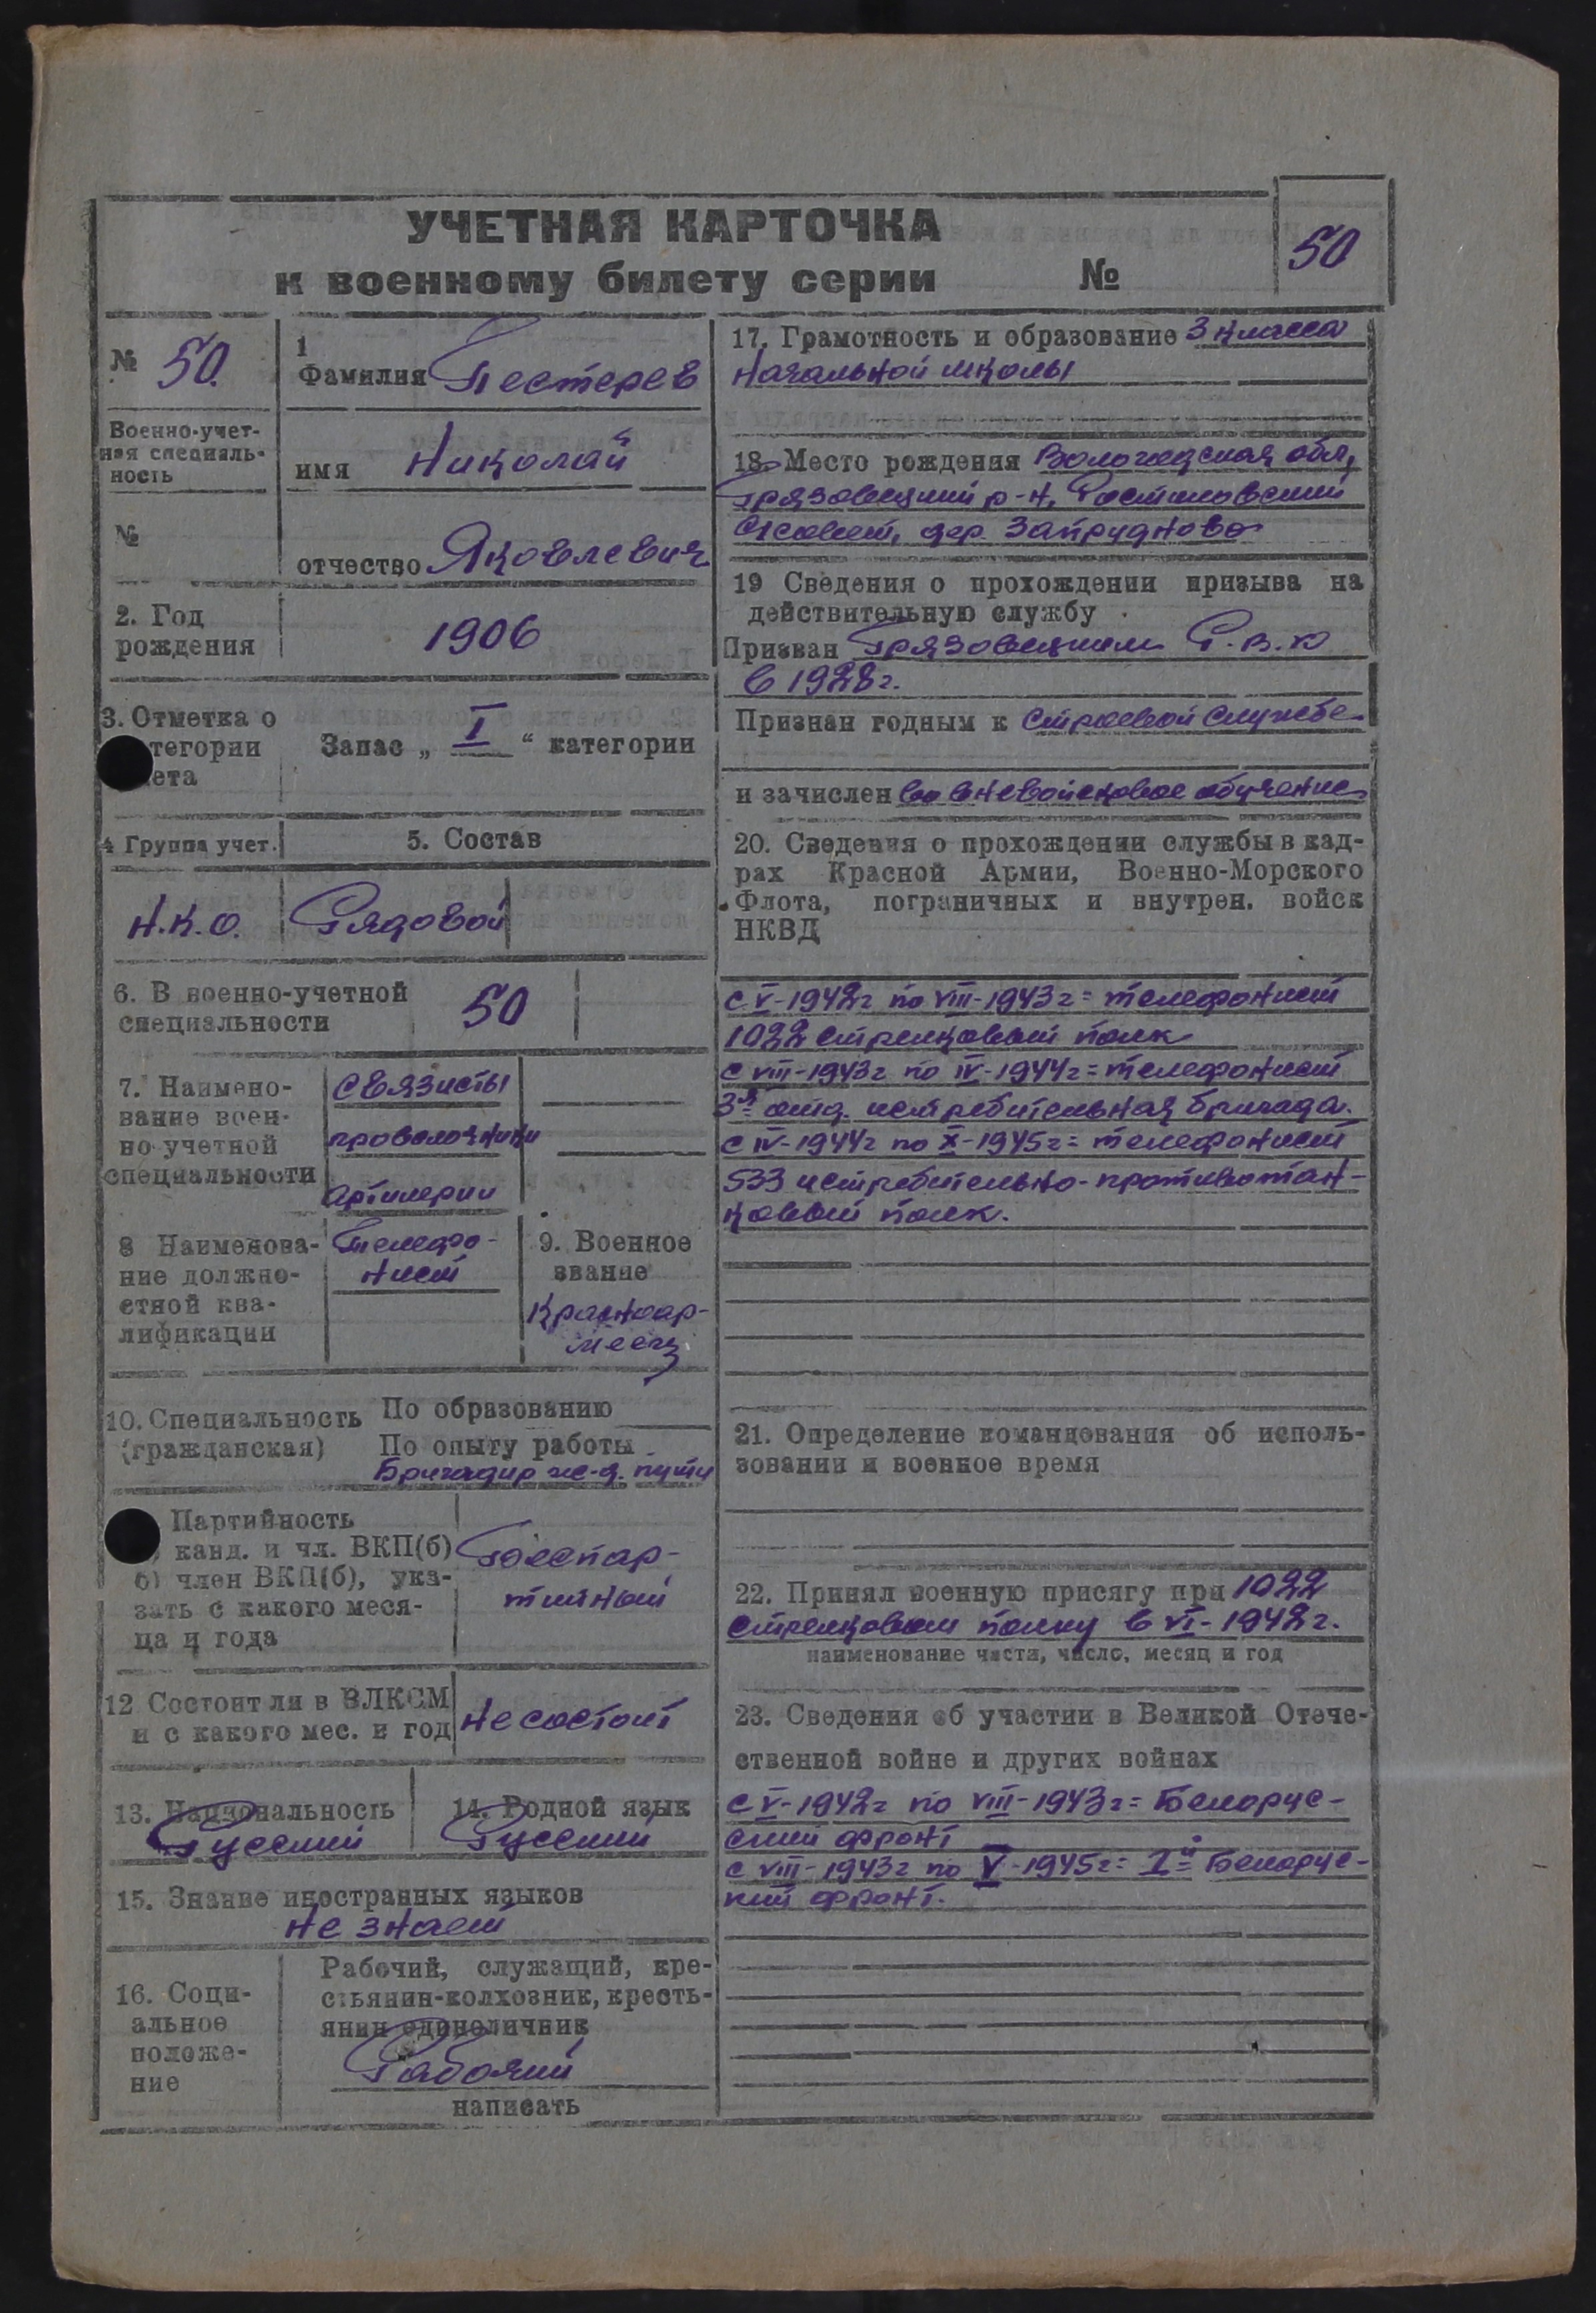 УЧЕТНАЯ КАРТОЧКА
к военному билету серии №
50
№ 50.
Военно-учет-
ная специаль-
ность
№
1
Фамилия Пестерев
имя Николай
отчество Яковлевич
2. Год
рождения
1906
3. Отметка о
тегории
ета
Запас „ I “ категории
4 Группа учет.
5. Состав
Н.К.О.
Рядовой
6. В военно-учетной
специальности
50
7. Наимено-
вание воен-
но-учетной
специальности
связисты
проволочники
артилерии
8 Наименова-
ние должно-
стной ква-
лификации
Телефо-
нист
9. Военное
звание
Красноар-
меец
10. Специальность
(гражданская)
По образованию
По опыту работы
Бригадир ж-д. пути
Партийность
) канд. и чл. ВКП(б)
б) член ВКП(б), ука-
зать с какого меся-
ца и года
Беспар-
тийный
12 Состоит ли в ВЛКСМ
и с какого мес. и год
не состоит
13. Национальность
Русский
14. Родной язык
Русский
15. Знание иностранных языков
не знает
16. Соци-
альное
положе-
ние
Рабочий, служащий, кре-
стьянин-колхозник, кресть-
янин единоличник
Рабочий
написать
17. Грамотность и образование 3 класса
начальной школы
18. Место рождения Вологодская обл,
Грязовецкий р-н, Ростиловский
с/совет, дер. Запрудново
19 Сведения о прохождении призыва на
действительную службу
Призван Грязовецким Р.В.К
в 1928г.
Признан годным к строевой службе
и зачислен во вневойсковое обучение
20. Сведения о прохождении службы в кад-
рах Красной Армии, Военно-Морского
Флота, пограничных и внутрен. войск
НКВД
с V-1942г по VIII-1943г = телефонист
1022 стрелковый полк
с VIII-1943г по IV-1944г = телефонист
3я отд. истребительная бригада.
с IV-1944г по X-1945г = телефонист
533 истребительно-противотан-
ковый полк.
21. Определение командования об исполь-
зовании и военное время
22. Принял военную присягу при 1022
стрелковом полку в VI-1942г.
наименование части, число, месяц и год
23. Сведения об участии в Великой Отече-
ственной войне и других войнах
с V-1942г по VIII-1943г = Белорус-
ский фронт
с VIII-1943г по V-1945г = 1й Белорус-
кий фронт.